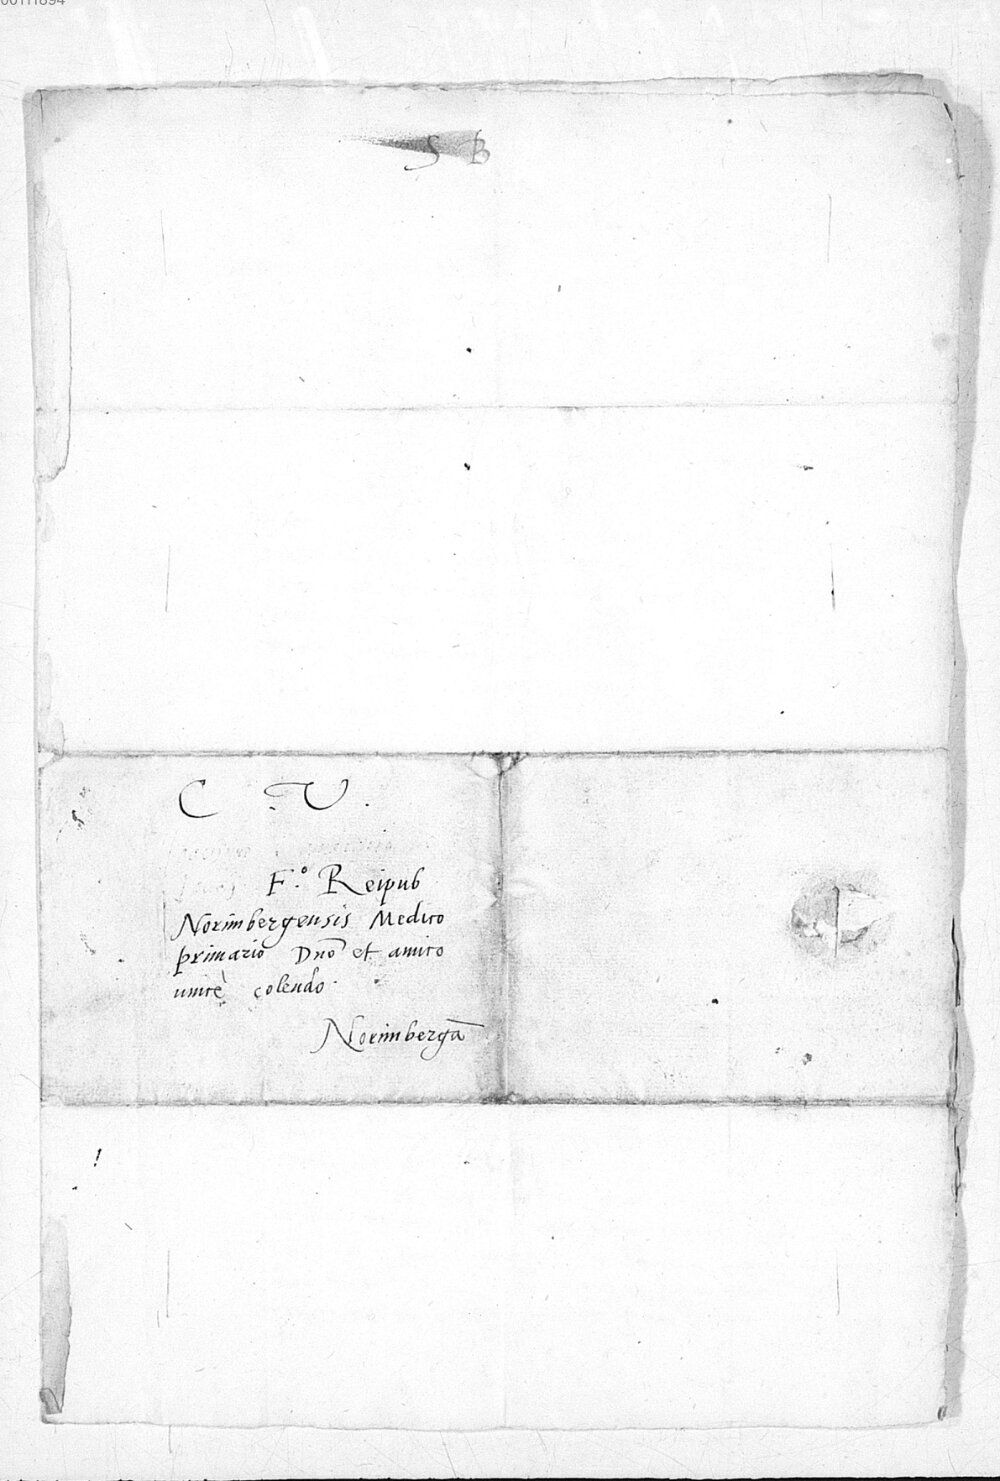 S B
C V.
F.º Reipub
Norimbergensis Medico
primario Dnō et amico
unicè colendo.
Norimbergā